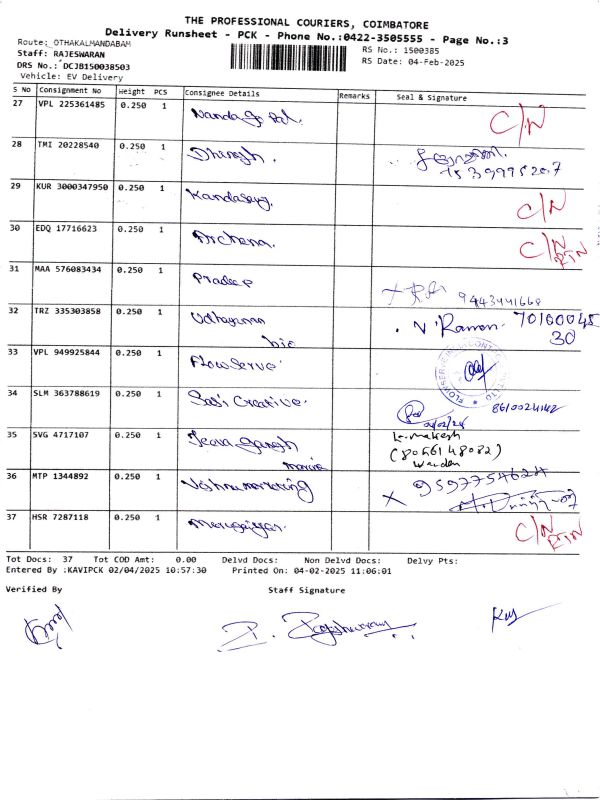 THE PROFESSIONAL COURIERS, COIMBATORE
Delivery Runsheet - PCK - Phone No.:0422-3505555 - Page No.:3
Route: OTHAKALMANDABAM
Staff: RAJESWARAN
DRS No.: DCJB150038503
Vehicle: EV Delivery
RS No.: 1500385
RS Date: 04-Feb-2025
S No Consignment No Height PCS Consignee Details Remarks Seal & Signature
27 VPL 225361485 0.250 1 Nanda Go Pal. C/N
28 TMI 20228540 0.250 1 Dhinesh.
29 KUR 3000347950 0.250 1 Kandasamy. C/N
30 EDQ 17716623 0.250 1 Archena. C/N RTN
31 MAA 576083434 0.250 1 Pradeep 9443441668
32 TRZ 335303858 0.250 1 bio V. Raman. 70160045
30
33 VPL 949925844 0.250 1 Flowserve
34 SLM 363788619 0.250 1 Sasi Creative. 8610024142
35 SVG 4717107 0.250 1 k. makesh
(8056148082)
Warden
36 MTP 1344892 0.250 1 X 9597754624
37 HSR 7287118 0.250 1 C/N RTN
Tot Docs: 37 Tot COD Amt: 0.00 Delvd Docs: Non Delvd Docs: Delvy Pts:
Entered By :KAVIPCK 02/04/2025 10:57:30 Printed On: 04-02-2025 11:06:01
Verified By Staff Signature